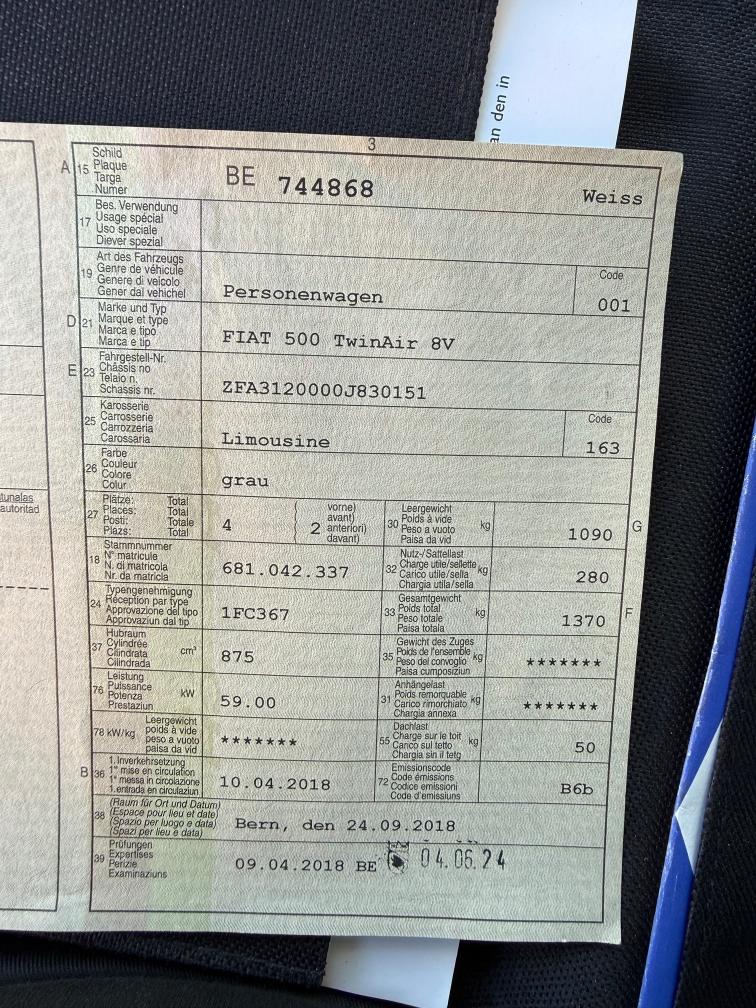 an den in
3
A 15 Schild
Plaque
Targa
Numer
BE 744868 Weiss
17 Bes. Verwendung
Usage spécial
Uso speciale
Diever spezial
19 Art des Fahrzeugs
Genre de véhicule
Genere di veicolo
Gener dal vehichel
Personenwagen
Code
001
D 21 Marke und Typ
Marque et type
Marca e tipo
Marca e tip
FIAT 500 TwinAir 8V
E 23 Fahrgestell-Nr.
Châssis no
Telaio n.
Schassis nr.
ZFA3120000J830151
25 Karosserie
Carrosserie
Carrozzeria
Carossaria
Limousine
Code
163
26 Farbe
Couleur
Colore
Colur
grau
27 Plätze: Total
Places: Total
Posti: Totale
Plazs: Total
4
vorne)
avant)
2 anteriori)
davant)
30 Leergewicht
Poids à vide
Peso a vuoto
Paisa da vid
kg
1090
G
18 Stammnummer
N° matricule
N. di matricola
Nr. da matricla
681.042.337
32 Nutz-/Sattellast
Charge utile/sellette
Carico utile/sella
Chargia utila/sella
kg
280
24 Typengenehmigung
Réception par type
Approvazione del tipo
Approvaziun dal tip
1FC367
33 Gesamtgewicht
Poids total
Peso totale
Paisa totala
kg
1370
F
37 Hubraum
Cylindrée
Cilindrata
Cilindrada
cm³
875
35 Gewicht des Zuges
Poids de l'ensemble
Peso del convoglio
Paisa cumposiziun
kg
*******
76 Leistung
Puissance
Potenza
Prestaziun
kW
59.00
31 Anhängelast
Poids remorquable
Carico rimorchiato
Chargia annexa
kg
*******
78 kW/kg Leergewicht
poids à vide
peso a vuoto
paisa da vid
*******
55 Dachlast
Charge sur le toit
Carico sul tetto
Chargia sin il tetg
kg
50
B 36 1. Inverkehrsetzung
1re mise en circulation
1a messa in circolazione
1. entrada en circulaziun
10.04.2018
72 Emissionscode
Code émissions
Codice emissioni
Code d'emissiuns
B6b
38 (Raum für Ort und Datum)
(Espace pour lieu et date)
(Spazio per luogo e data)
(Spazi per lieu e data)
Bern, den 24.09.2018
39 Prüfungen
Expertises
Perizie
Examinaziuns
09.04.2018 BE 04.06.24
tunalas
autoritad